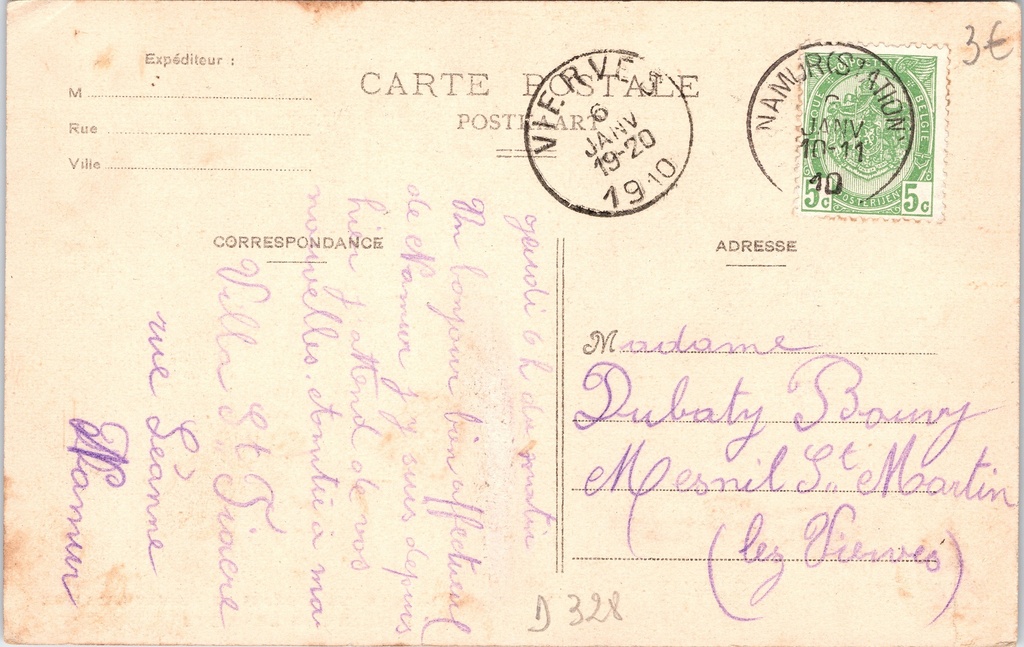 Expéditeur :
M
Rue
Ville
CARTE POSTALE
POSTKAART
VIERVES
6
JANV
19-20
1910
NAMUR (STATION)
JANV
10-11
10
BELGIE
POSTERIJEN
5c 5c
3€
CORRESPONDANCE
ADRESSE
jeudi 6 h du matin
Un bonjour bien affectueux
de Namur j'y suis depuis
hier j'attend de vos
nouvelles. à ma
Villa St Fiacre
rue Léanne
Namur
Madame
Dubaty Bouvy
Mesnil St Martin
(lez Vierves)
D 328